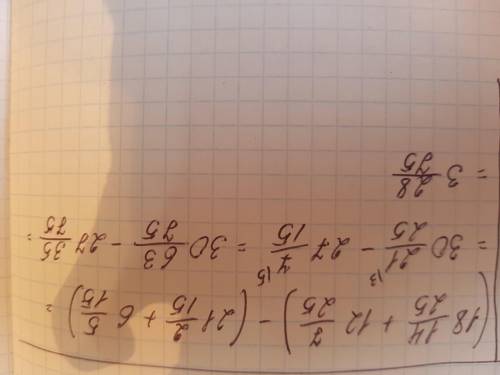 (18 14/25 + 12 7/25) - (21 2/15 + 6 5/15) =
= 30 21/25 - 27 7/15 = 30 63/75 - 27 35/75 =
= 3 28/75